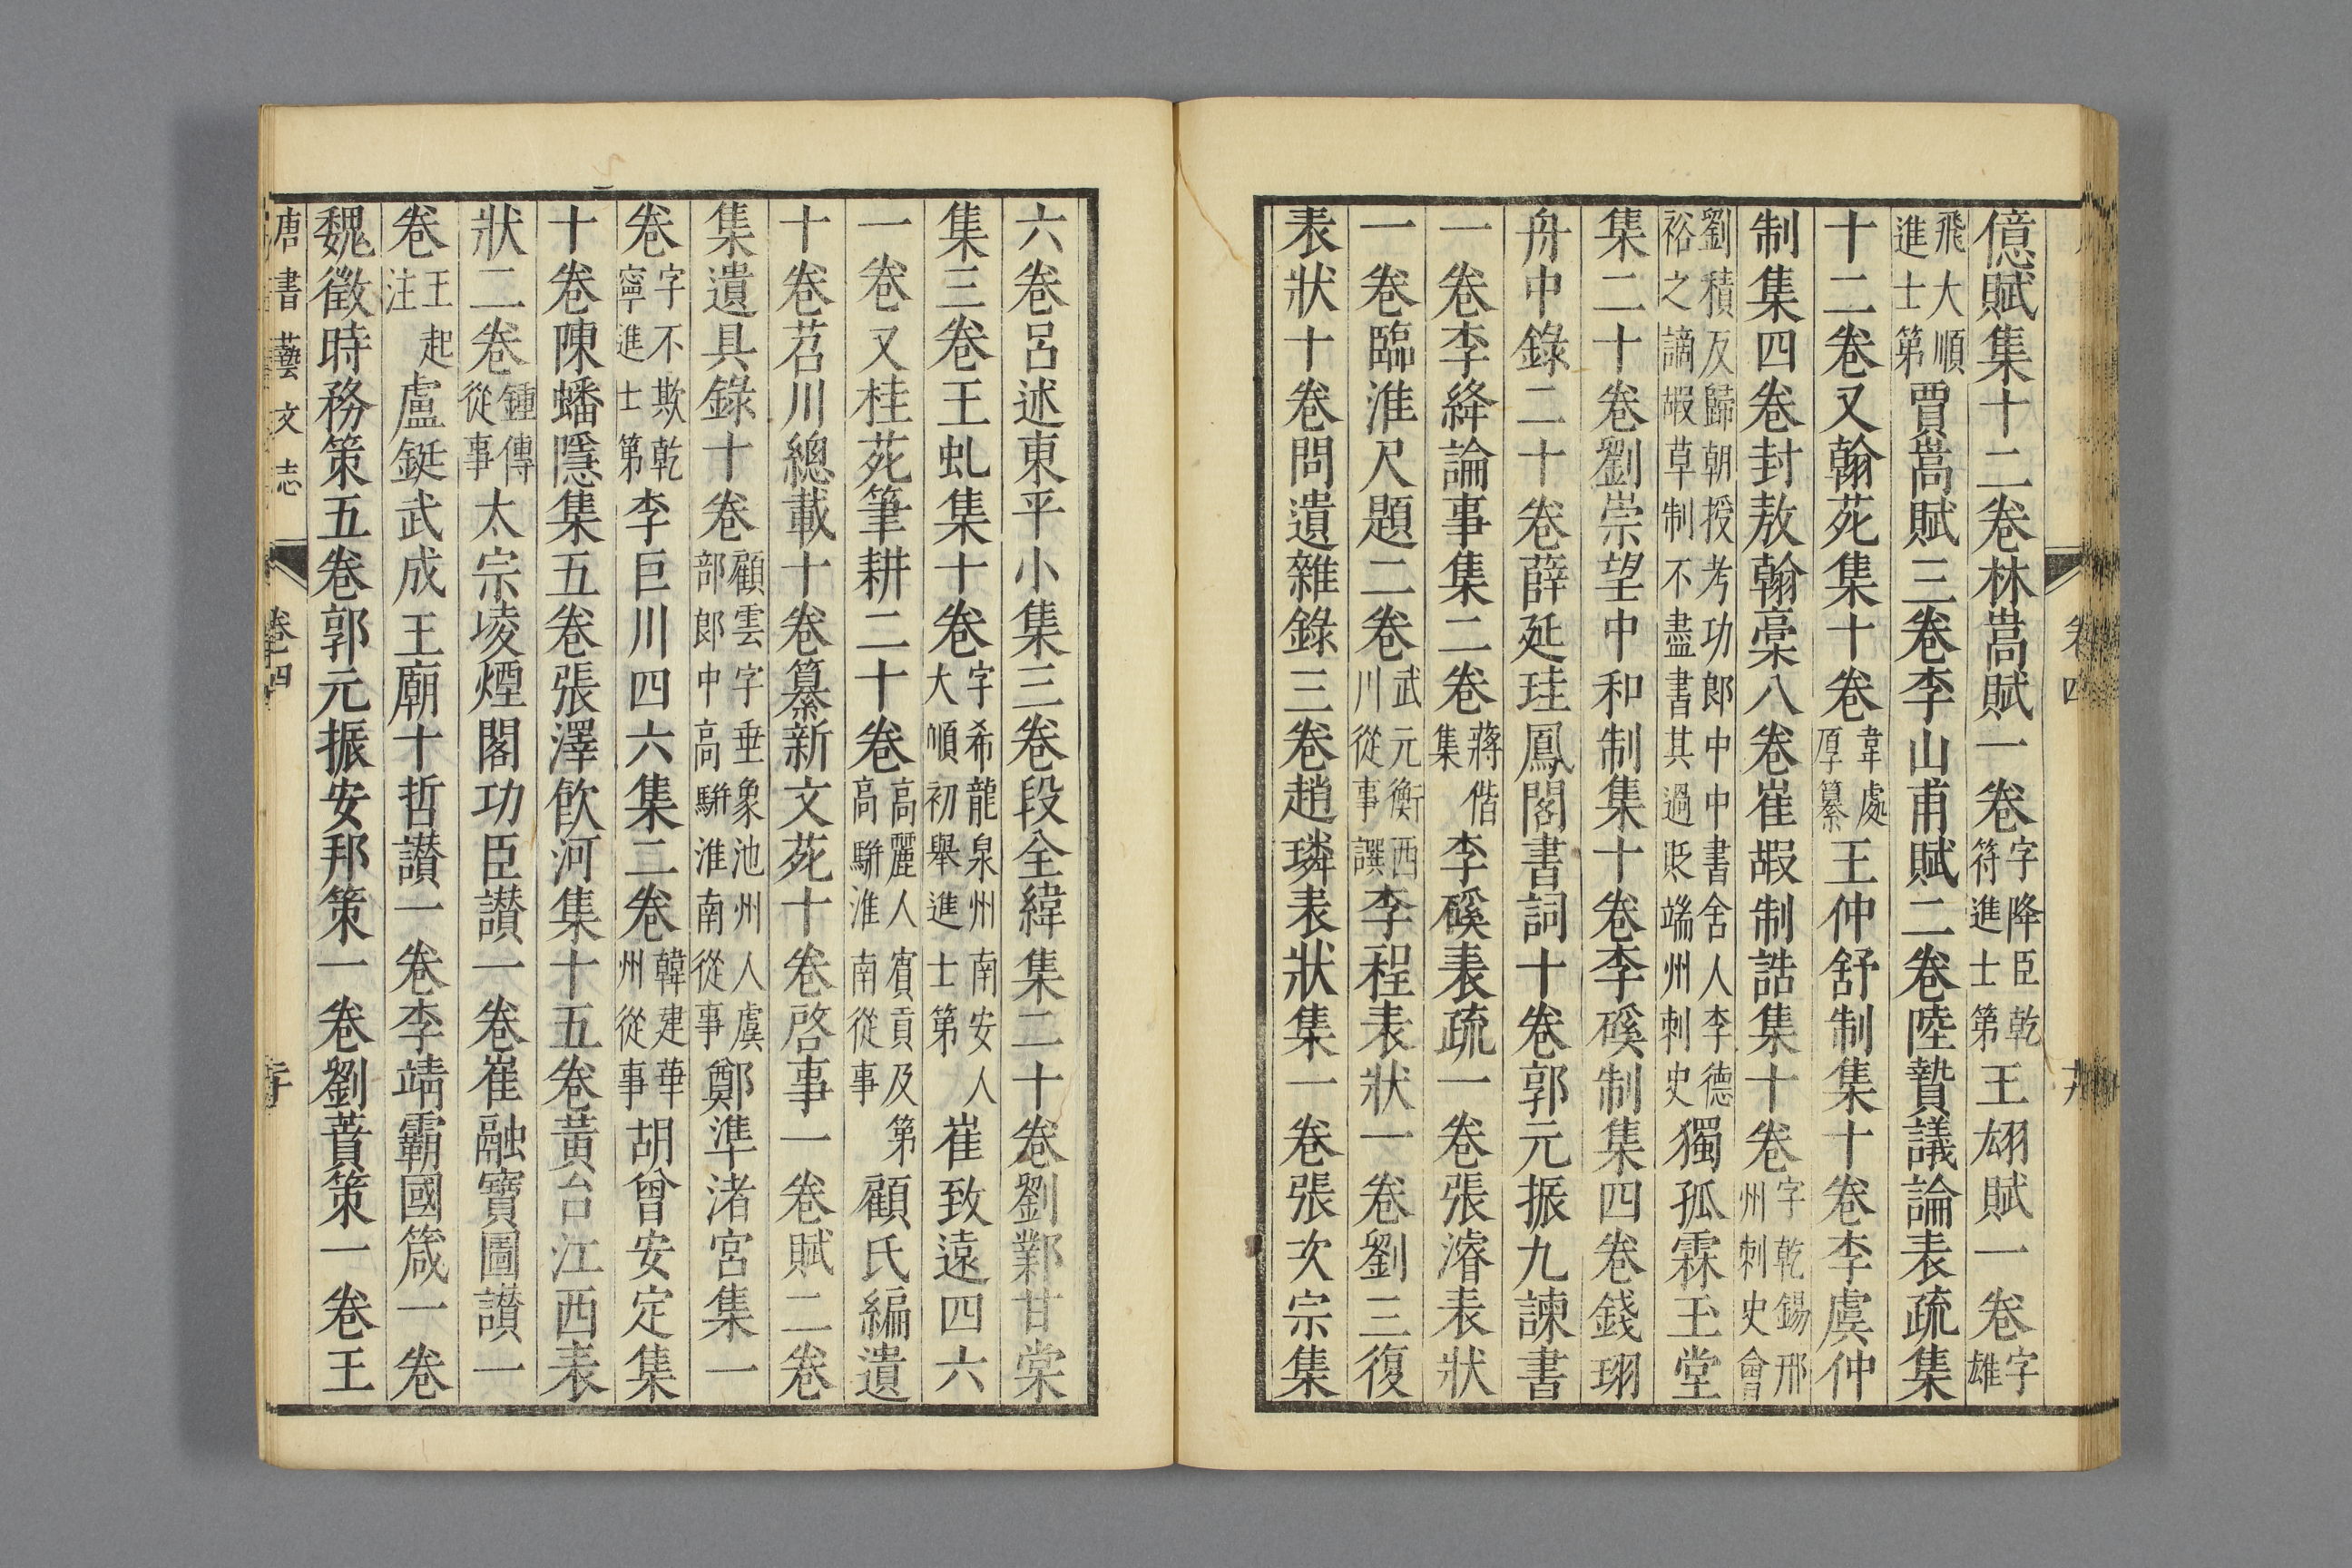 億賦集十二卷林嵩賦一卷字降臣乾符進士第王翃賦一卷字雄
飛大順進士第賈嵩賦三卷李山甫賦二卷陸贄議論表疏集
十二卷又翰苑集十卷韋處厚纂王仲舒制集十卷李虞仲
制集四卷封敖翰稾八卷崔嘏制誥集十卷字乾錫邢州刺史會
劉積反歸朝授考功郎中中書舍人李德裕之謫嘏草制不盡書其過貶端州刺史獨孤霖玉堂
集二十卷劉崇望中和制集十卷李磎制集四卷錢珝
舟中錄二十卷薛延珪鳳閣書詞十卷郭元振九諫書
一卷李絳論事集二卷蔣偕集李磎表疏一卷張濬表狀
一卷臨淮尺題二卷武元衡西川從事譔李程表狀一卷劉三復
表狀十卷問遺雜錄三卷趙璘表狀集一卷張次宗集
六卷呂述東平小集三卷段全緯集二十卷劉鄴甘棠
集三卷王虬集十卷字希龍泉州南安人大順初舉進士第崔致遠四六
一卷又桂苑筆耕二十卷高麗人賓貢及第高駢淮南從事顧氏編遺
十卷苕川總載十卷纂新文苑十卷啓事一卷賦二卷
集遺具錄十卷顧雲字垂象池州人虞部郎中高駢淮南從事鄭準渚宮集一
卷字不欺乾寧進士第李巨川四六集二卷韓建華州從事胡曾安定集
十卷陳蟠隱集五卷張澤飲河集十五卷黃台江西表
狀二卷鍾傳從事太宗堎煙閣功臣讃一卷崔融寶圖讃一
卷王起注盧鋌武成王廟十哲讃一卷李靖霸國箴一卷
魏徵時務策五卷郭元振安邦策一卷劉蕡策一卷王
唐書藝文志 卷四